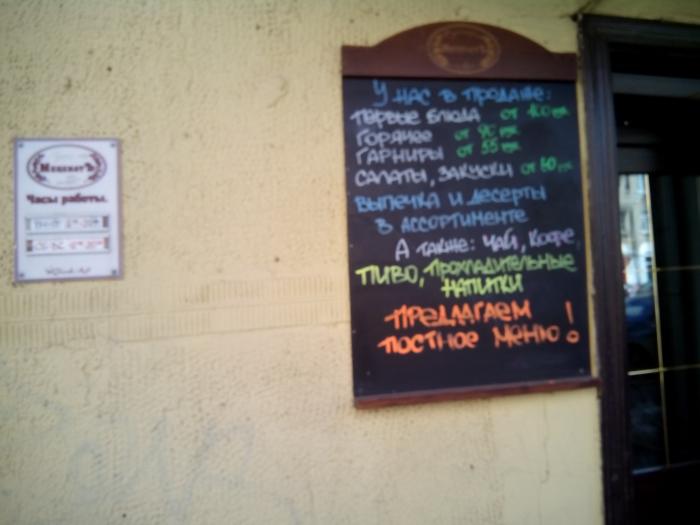 Часы работы.
У НАС В ПРОДАЖЕ:
ПЕРВЫЕ БЛЮДА ОТ 100 РУБ
ГОРЯЧЕЕ ОТ 90 РУБ
ГАРНИРЫ ОТ 55 РУБ
САЛАТЫ, ЗАКУСКИ ОТ 60 РУБ
ВЫПЕЧКА И ДЕСЕРТЫ
В АССОРТИМЕНТЕ
А ТАКЖЕ: ЧАЙ, КОФЕ,
ПИВО, ПРОХЛАДИТЕЛЬНЫЕ
НАПИТКИ
ПРЕДЛАГАЕМ
ПОСТНОЕ МЕНЮ!